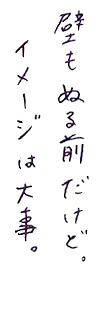 壁もぬる前だけど。
イメージは大事。